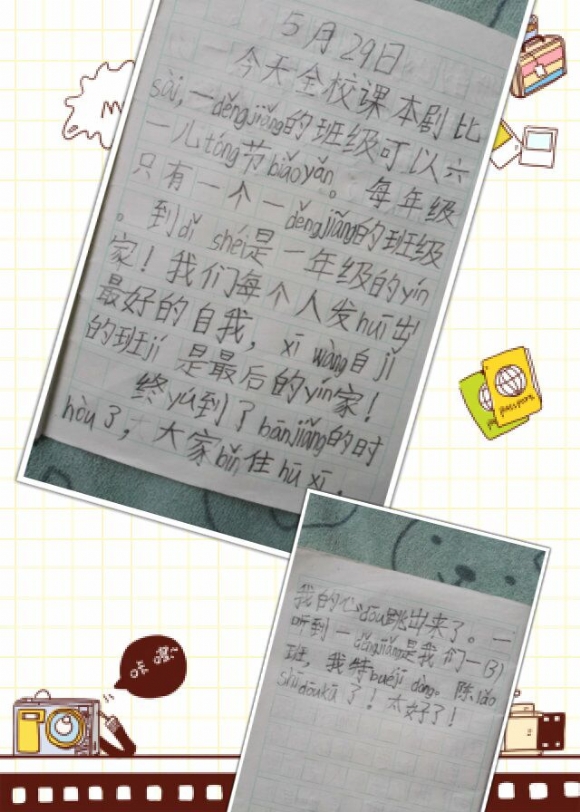 5月29日
今天全校课本剧比
sài,一děngjiǎng的班级可以六
一儿tóng节biǎoyǎn。每年级
只有一个一děngjiǎng的班级
。到dǐ shéi是一年级的yín
家!我们每个人发huī出
最好的自我,xī wàng自jǐ
的班jí是最后的yín家!
终yú到了bānjiǎng的时
hòu了,大家bǐn住hū xī,
我的心dōu跳出来了。一
听到一děngjiǎng是我们一(3)
班,我特biéjī dòng。陈lǎo
shīdōukū了!太好了!
passport
咔 嚓~